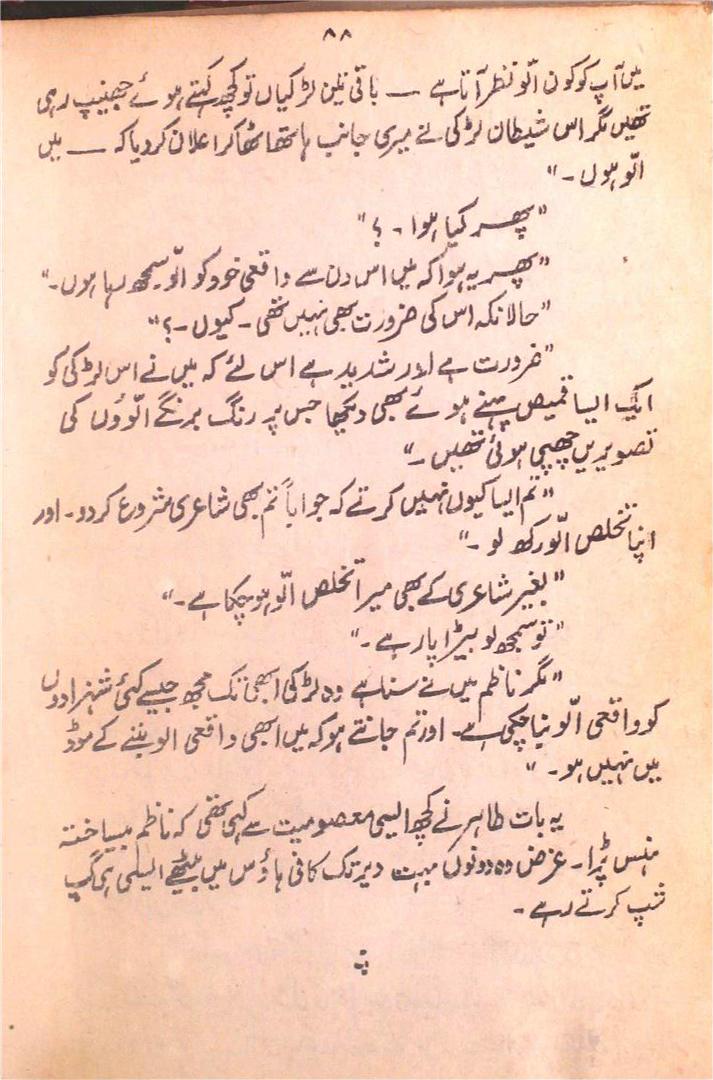 ۸۸
میں آپ کو کون الّو نظر آتا ہے — باقی تین لڑکیاں تو کچھ کہتے ہوئے جھینپ رہی
تھیں مگر اس شیطان لڑکی نے میری جانب ہاتھ اٹھا کر اعلان کر دیا کہ — میں
الّو ہوں۔"
"پھر کیا ہوا۔؟"
"پھر یہ ہوا کہ میں اس دن سے واقعی خود کو الّو سمجھ رہا ہوں۔"
"حالانکہ اس کی ضرورت بھی نہیں تھی۔ کیوں۔؟"
"ضرورت ہے اور شدید ہے اس لئے کہ میں نے اس لڑکی کو
ایک ایسا قمیص پہنے ہوئے بھی دیکھا جس پر رنگ برنگے الّوؤں کی
تصویریں چھپی ہوئی تھیں۔"
"تم ایسا کیوں نہیں کرتے کہ جواباً تم بھی شاعری شروع کر دو۔ اور
اپنا تخلص الّو رکھ لو۔"
"بغیر شاعری کے بھی میرا تخلص الّو ہو چکا ہے۔"
"تو سمجھ لو بیڑا پار ہے۔"
"مگر ناظم میں نے سنا ہے وہ لڑکی ابھی تک مجھ جیسے کئی شہزادوں
کو واقعی الّو بنا چکی ہے۔ اور تم جانتے ہو کہ میں ابھی واقعی الو بننے کے موڈ
میں نہیں ہو۔"
یہ بات طاہر نے کچھ ایسی معصومیت سے کہی تھی کہ ناظم بیساختہ
ہنس پڑا۔ غرض وہ دونوں بہت دیر تک کافی ہاؤس میں بیٹھے ایسی ہی گپ
شپ کرتے رہے۔